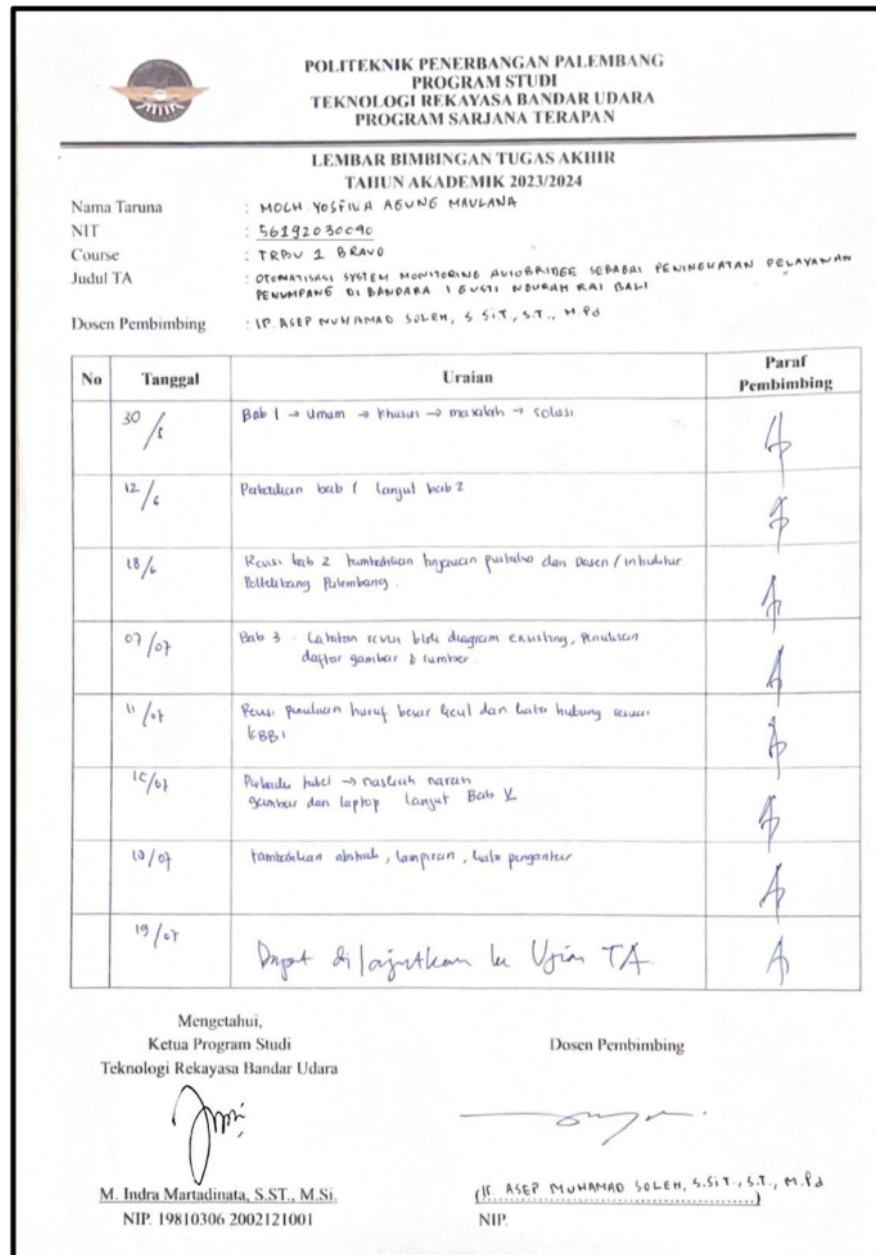 POLITEKNIK PENERBANGAN PALEMBANG
PROGRAM STUDI
TEKNOLOGI REKAYASA BANDAR UDARA
PROGRAM SARJANA TERAPAN
LEMBAR BIMBINGAN TUGAS AKHIR
TAHUN AKADEMIK 2023/2024
Nama Taruna : MOCH YOSFIKA AGUNG MAULANA
NIT : 56192030040
Course : TRBU 1 BRAVO
Judul TA : OTOMATISASI SYSTEM MONITORING AVIOBRIDGE SEBAGAI PENINGKATAN PELAYANAN
PENUMPANG DI BANDARA I GUSTI NGURAH RAI BALI
Dosen Pembimbing : IR. ASEP MUHAMAD SOLEH, S.SiT, S.T., M.Pd
No Tanggal Uraian Paraf
Pembimbing
30/5 Bab 1 → umum → khusus → masalah → solusi
12/6 Perbaikan bab 1 lanjut bab 2
18/6 Revisi bab 2 tambahkan tinjauan pustaka dari Dosen /
Palembang.
07/07 Bab 3 : Catatan revisi blok diagram existing, Penulisan
daftar gambar & sumber.
11/07 Revisi penulisan huruf besar kecil dan kata hubung sesuai
KBBI
/07 tabel → naskah narasi
gambar dan laptop lanjut Bab V
/07 tambahkan abstrak, lampiran, kata pengantar
19/07 Dapat dilajutkan ke Ujian TA.
Mengetahui,
Ketua Program Studi
Teknologi Rekayasa Bandar Udara
Dosen Pembimbing
M. Indra Martadinata, S.ST., M.Si.
NIP. 19810306 2002121001
(IR. ASEP MUHAMAD SOLEH, S.SiT., S.T., M.Pd)
NIP.